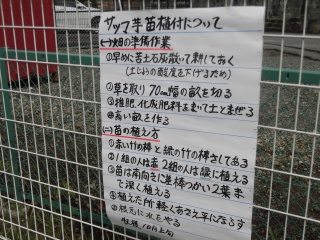 サツマ芋苗植付について
(一)畑の準備作業
①早めに苦土石灰散いて耕しておく
(土じょうの酸度を下げるため)
②草を取り 70cm幅の畝を切る
③堆肥、化成肥料をまいて土とまぜる
④高い畝を作る
(二)苗の植え方
①赤い竹の棒と緑の竹の棒さしてある
②1組の人は赤 2組の人は緑に植える
③苗は南向きに差棒つかい2葉
まで深く植える
④植えた所軽くおさえ平にならす
⑤根元に水をやる
収穫 10月上旬